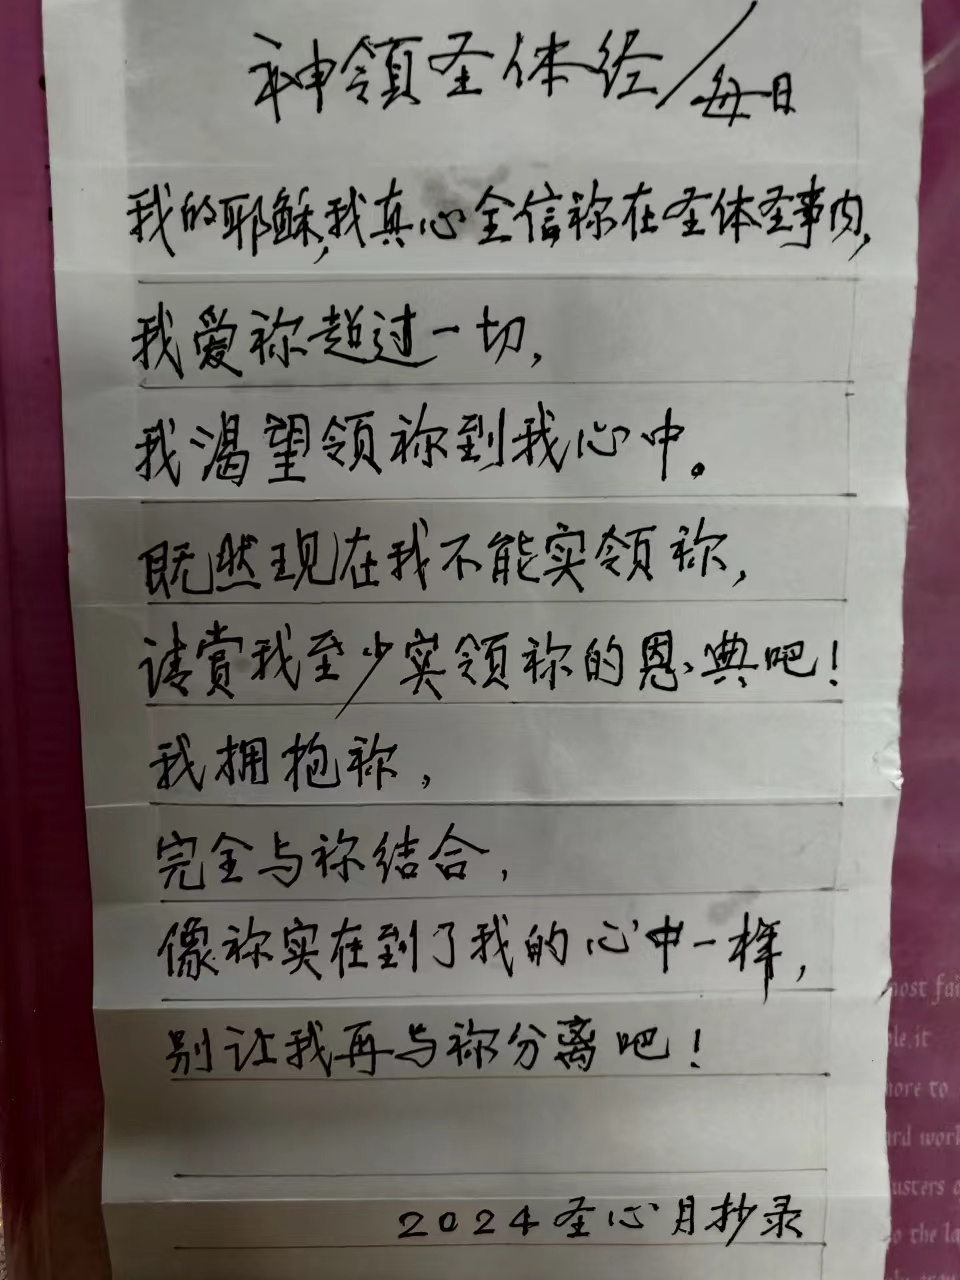 神领圣体经/每日
我的耶稣,我真心全信祢在圣体圣事内,
我爱祢超过一切,
我渴望领祢到我心中。
既然现在我不能实领祢,
请赏我至少实领祢的恩典吧!
我拥抱祢,
完全与祢结合,
像祢实在到了我的心中一样,
别让我再与祢分离吧!
2024圣心月抄录
ost fai
le, it
ore to
rd work
usters o
o the la